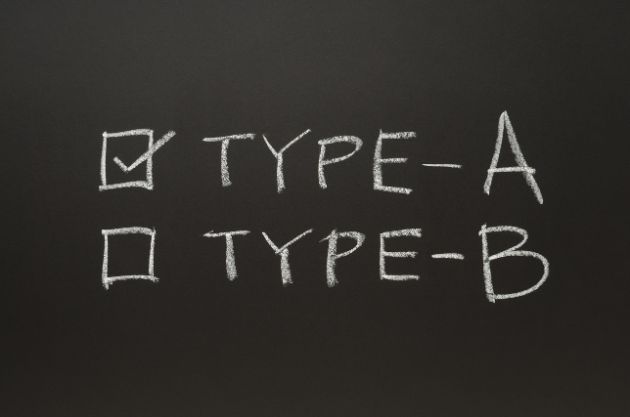 TYPE-A
TYPE-B